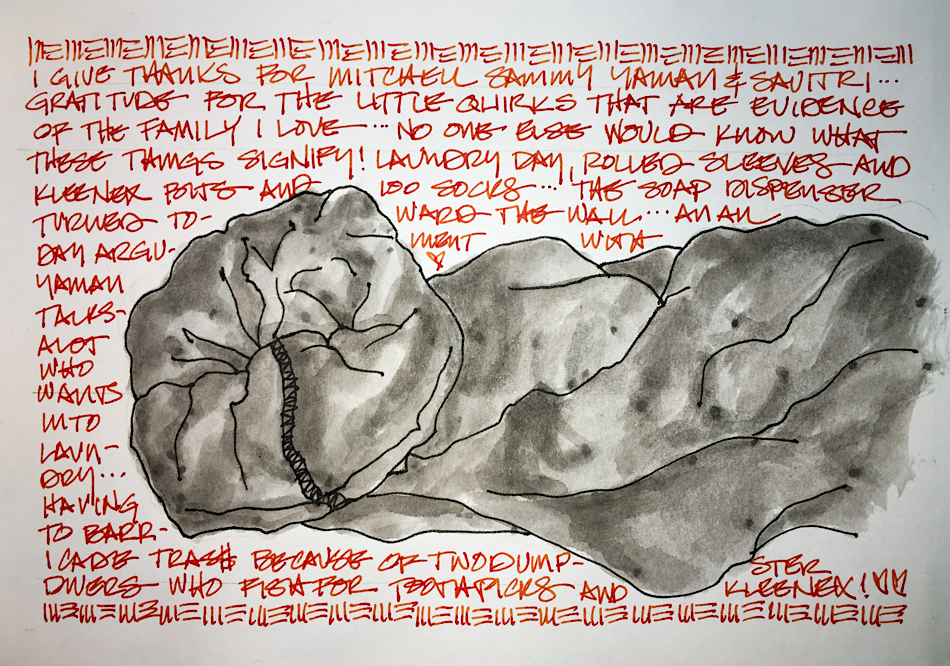 I GIVE THANKS FOR MITCHELL SAMMY YAMAN & SAVITRI...
GRATITUDE FOR THE LITTLE QUIRKS THAT ARE EVIDENCE
OF THE FAMILY I LOVE... NO ONE ELSE WOULD KNOW WHAT
THESE THINGS SIGNIFY! LAUNDRY DAY, ROLLED SLEEVES AND
KLEENEX AND 100 SOCKS... THE SOAP DISPENSER
TURNED TO- WARD THE WALL... AN ALL
DAY ARGU- MENT WITH
YAMAN
TALKS-
ALOT
WHO
WANTS
INTO
LAUN-
DRY...
HAVING
TO BARR-
I CADE TRASH BECAUSE OF TWO DUMP- STER
DIVERS WHO FISH FOR TOOTHPICKS AND KLEENEX! ♡♡